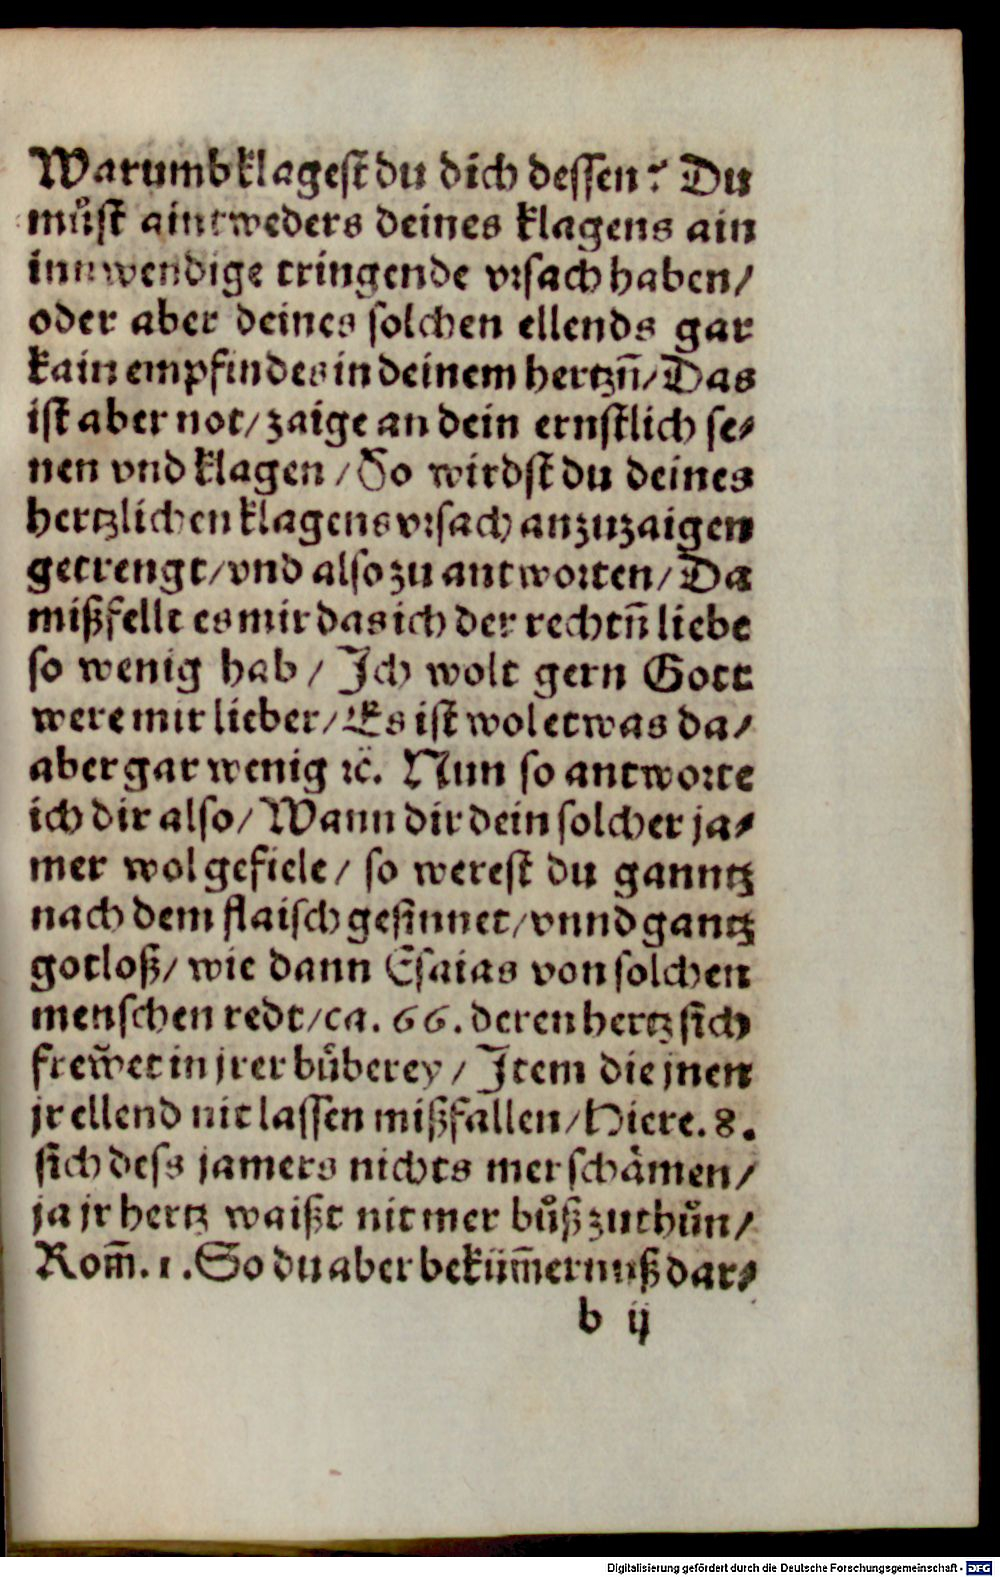 Warumb klagest du dich dessen? Du
muͦst aintweders deines klagens ain
innwendige tringende vꝛsach haben/
oder aber deines solchen ellends gar
kain empfindes in deinem hertzn̄/ Das
ist aber not/ zaige an dein ernstlich se⸗
nen vnd klagen / So wirdst du deines
hertzlichen klagens vꝛsach anzuzaigen
getrengt/ vnd also zu antwoꝛten/ Da
mißfellt es mir das ich der rechtn̄ liebe
so wenig hab / Ich wolt gern Gott
were mir lieber/ Es ist wol etwas da/
aber gar wenig ꝛc̈. Nun so antwoꝛte
ich dir also/ Wann dir dein solcher ja⸗
mer wol gefiele/ so werest du ganntz
nach dem flaisch gesinnet/ vnnd gantz
gotloß/ wie dann Esaias von solchen
menschen redt/ ca. 66. deren hertz sich
frew̃et in jrer buͤberey / Item die jnen
jr ellend nit lassen mißfallen/ Hiere. 8.
sich dess jamers nichts mer schaͤmen/
ja jr hertz waißt nit mer buͦß zuthuͦn/
Rom̄. 1. So du aber beküm̄ernuß dar⸗
b ij
Digitalisierung gefördert durch die Deutsche Forschungsgemeinschaft - DFG